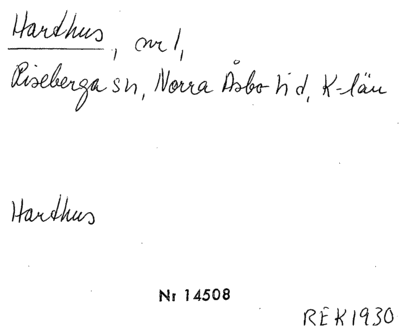 Harthus, nr 1,
Riseberga sn, Norra Åsbo hd, K-län
Harthus
Nr 14508
REK1930